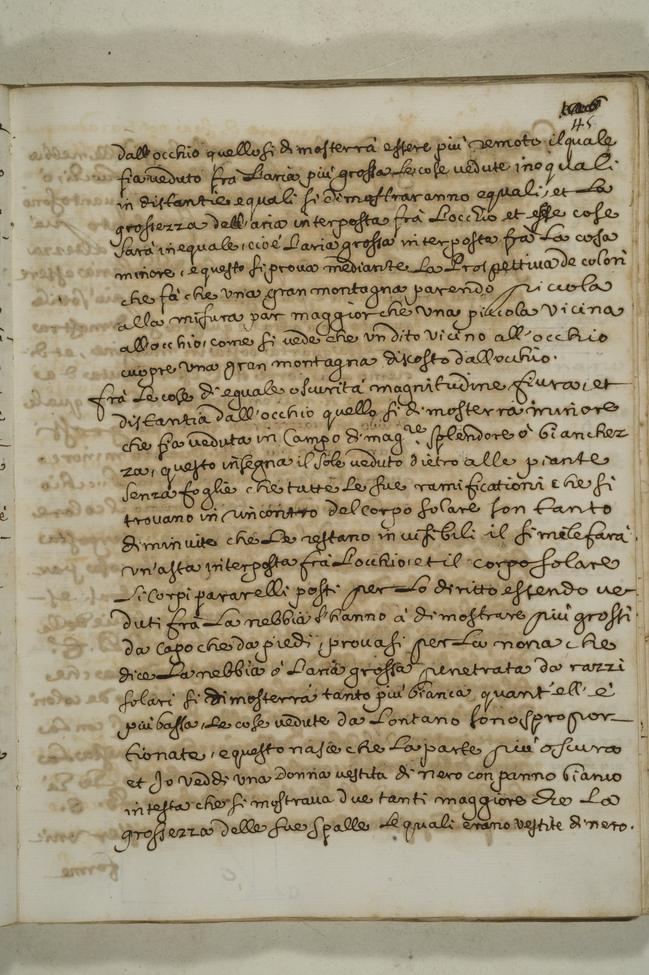 45.
dall'occhio quello si dimosterrà essere più remoto il quale
fia veduto frà l'aria più grossa. Le cose vedute inequali
in distantie equali si dimostraranno equali, et la
grossezza dell'aria interposta frà l'occhio et esse cose
sarà inequale, cioè l'aria grossa interposta frà la cosa
minore, e questo si prova mediante la Prospettiva de colori
che fà che una gran montagna parendo piccola
alla misura par maggior che una piccola vicina
all'occhio, come si vede che un dito vicino all'occhio
cuopre una gran montagna discosto dall'occhio.
frà le cose di equale oscurità magnitudine fiura, et
distantia dall'occhio quello si dimosterrà minore
che fia veduta in Campo di mag.re splendore ò bianchez
za, questo insegna il sole veduto dietro alle piante
senza foglie che tutte le sue ramificationi che si
trovano in rincontro del corpo solare son tanto
diminuite che le restano invisibili il simile farà
un'asta interposta frà l'occhio, et il corpo solare
Li corpi pararelli posti per lo diritto essendo ve
duti frà la nebbia s'hanno à dimostrare più grossi
da capo che da piedi, provasi per la nona che
dice la nebbia ò l'aria grossa penetrata da razzi
solari si dimosterrà tanto più bianca quant'ell'è
più bassa, le cose vedute da lontano sono spropor
tionate, e questo nasce che la parte più oscura
et Jo veddi una donna vestita di nero con panno bianco
in testa che si mostrava due tanti maggiore che la
grossezza delle sue spalle le quali erano vestite di nero.